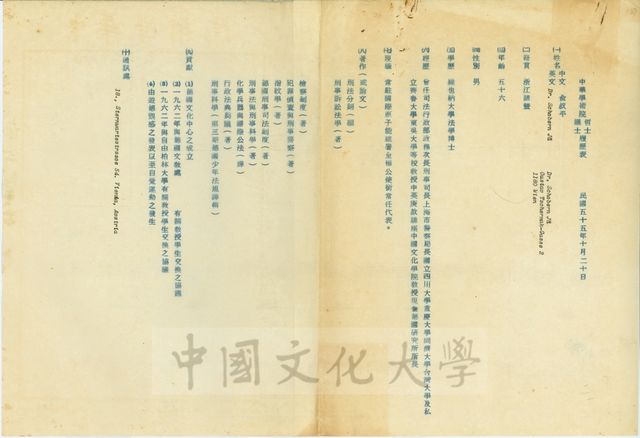 中華學術院 哲士 議士 履歷表
民國五十五年十月二十日
㈠姓名 中文 俞叔平
英文 Dr. Schubern Jü
Dr. Schubern Jü
Gustav Tschermak-Gasse 2
1180 Wien
㈡籍貫 浙江諸暨
㈢年齡 五十六
㈣性別 男
㈤學歷 維也納大學法學博士
㈥經歷 曾任司法行政部政務次長刑事司長上海市警察局長國立四川大學重慶大學同濟大學台灣大學及私
立齊魯大學東吳大學等校教授中英庚款講座中國文化學院教授現兼德國研究所所長
㈦現職 常駐國際原子能總署全權公使銜常任代表。
㈧著作(或論文)
刑法分則(編)
刑事訴訟法學(著)
檢察制度(著)
犯罪偵查與刑事警察(著)
指紋學(著)
德國刑事司法制度(著)
刑事法與刑事科學(著)
化學兵器與國際公法(著)
行政法典芻議(著)
刑事科學(第三研德國少年法規譯輯)
㈨貢獻
(1)德國文化中心之成立
(2)一九六二年與德國文教處 有關教授學生交換之協議
(3)一九六二年與自由柏林大學有關教授學生交換之協議
(4)由遊德觀感之發表以至自覺運動之發生
㈩通訊處
18., Sternwartestrasse 54. Vienna, Austria
中國文化大學